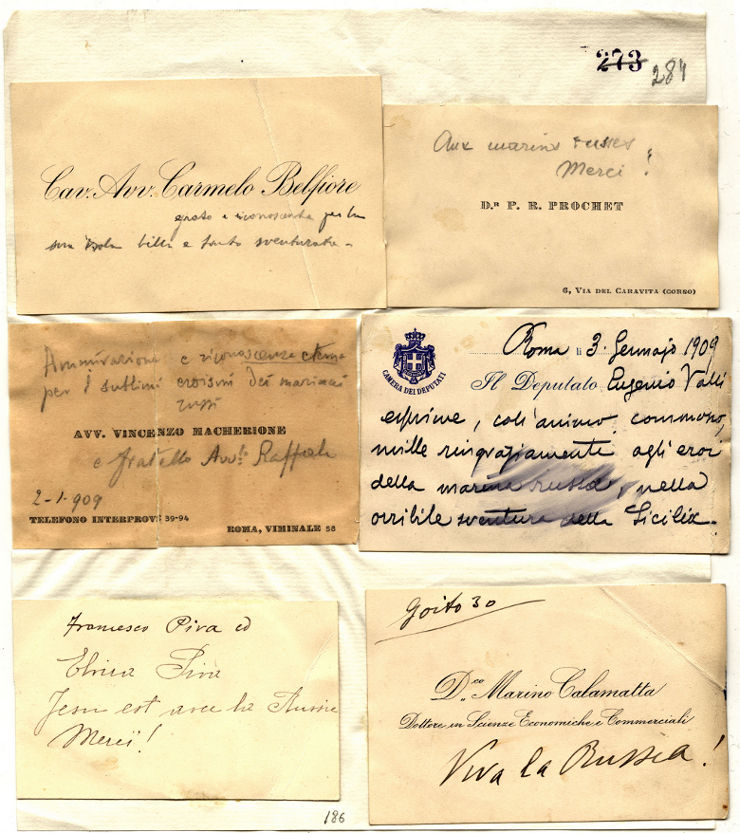 273
284
Cav. Avv. Carmelo Belfiore
grato e riconoscente per la
sua isola bella e tanto sventurata
Aux marins russes
Merci!
D.R P. R. PROCHET
6, VIA DEL CARAVITA (CORSO)
Ammirazione e riconoscenza eterna
per i sublimi eroismi dei marinai
russi
AVV. VINCENZO MACHERIONE
e fratello Avv.to Raffaele
2-1-909
TELEFONO INTERPROV. 39-94
ROMA, VIMINALE 58
CAMERA DEI DEPUTATI
Roma li 3. Gennajo 1909
Il Deputato Eugenio Valli
esprime, coll'animo commosso,
mille ringraziamente agli eroi
della marina russa, nella
orribile sventura della Sicilia.
Francesco Piva ed
Elvira Piva
Jesu est avec la Russie
Merci!
Goito 30
D.co Marino Calamatta
Dottore in Scienze Economiche e Commerciali
Viva la Russia!
186